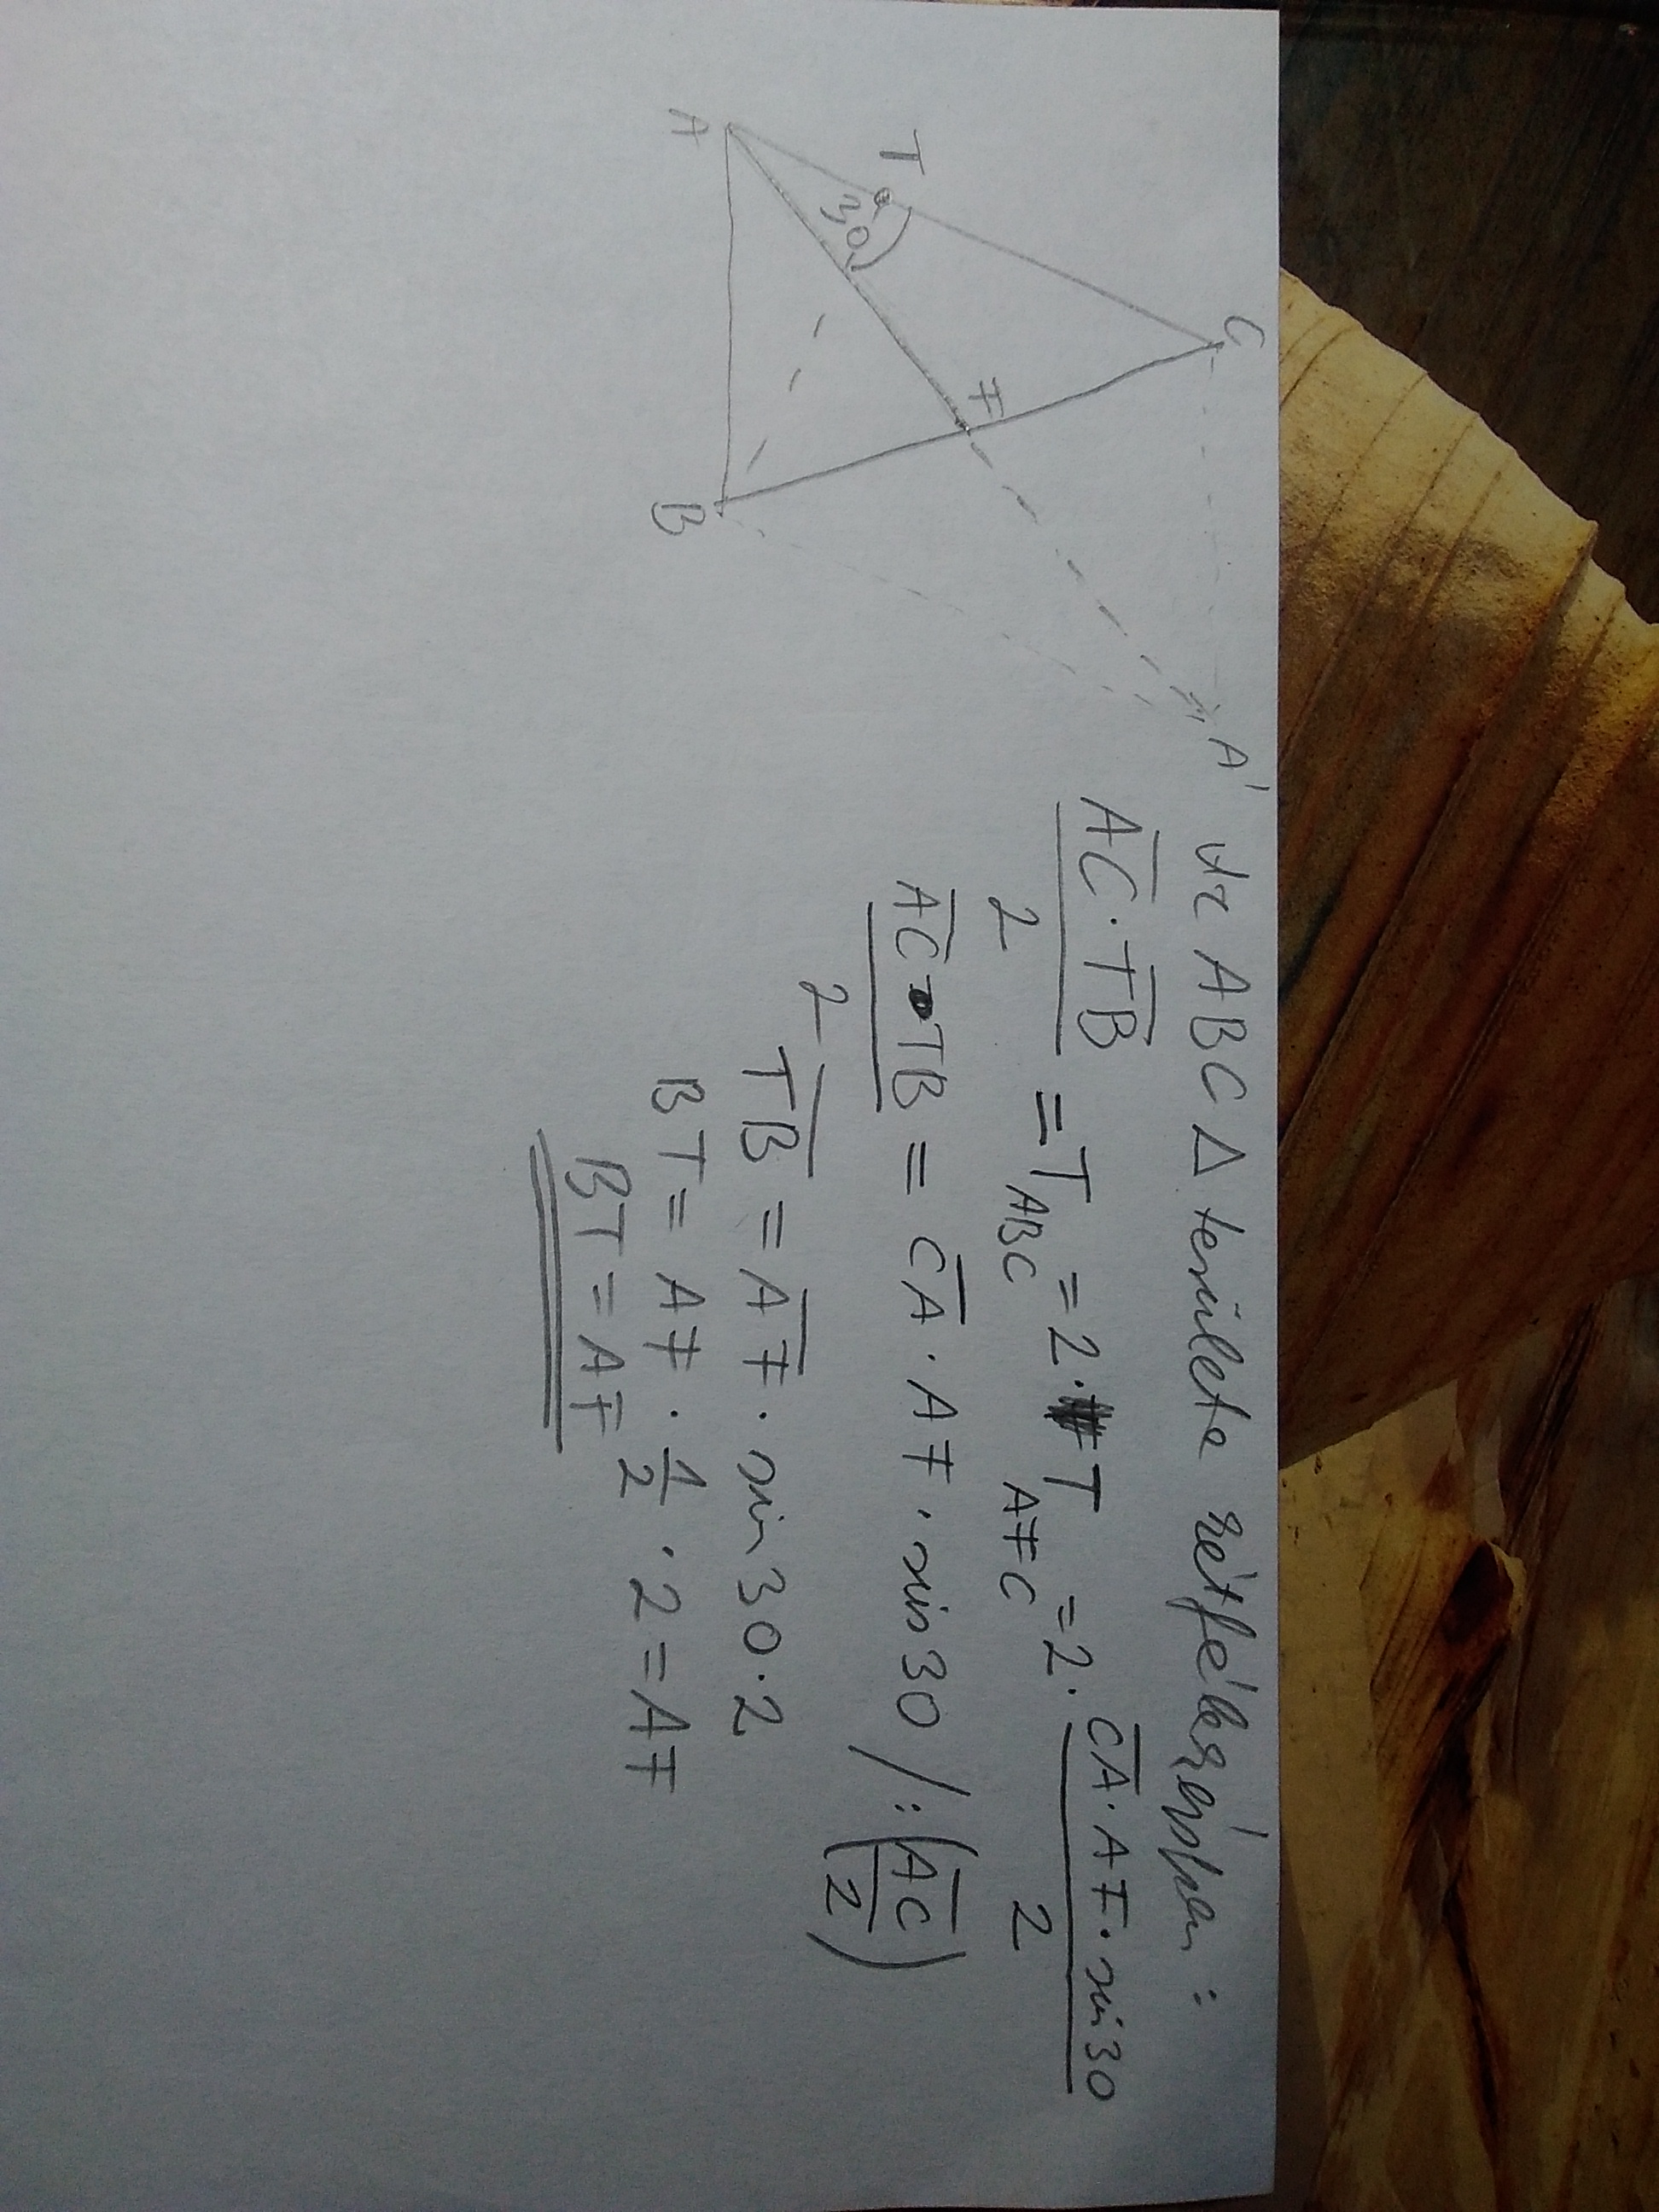 C
T
30
F
A
B
A'
Az ABC Δ területe kétféleképpen:
AC·TB/2 = T ABC = 2·T AFC = 2·CA·AF·sin30/2
AC·TB/2 = CA·AF·sin30 /:(AC/2)
TB = AF·sin30·2
BT = AF·1/2·2 = AF
BT = AF